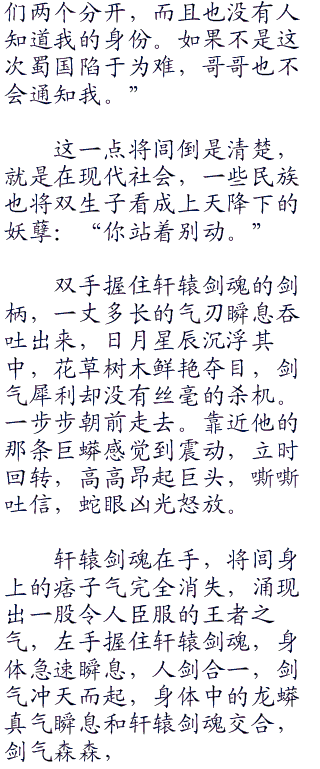 们两个分开，而且也没有人
知道我的身份。如果不是这
次蜀国陷于为难，哥哥也不
会通知我。”
这一点将闾倒是清楚，
就是在现代社会，一些民族
也将双生子看成上天降下的
妖孽：“你站着别动。”
双手握住轩辕剑魂的剑
柄，一丈多长的气刃瞬息吞
吐出来，日月星辰沉浮其
中，花草树木鲜艳夺目，剑
气犀利却没有丝毫的杀机。
一步步朝前走去。靠近他的
那条巨蟒感觉到震动，立时
回转，高高昂起巨头，嘶嘶
吐信，蛇眼凶光怒放。
轩辕剑魂在手，将闾身
上的痞子气完全消失，涌现
出一股令人臣服的王者之
气，左手握住轩辕剑魂，身
体急速瞬息，人剑合一，剑
气冲天而起，身体中的龙蟒
真气瞬息和轩辕剑魂交合，
剑气森森，